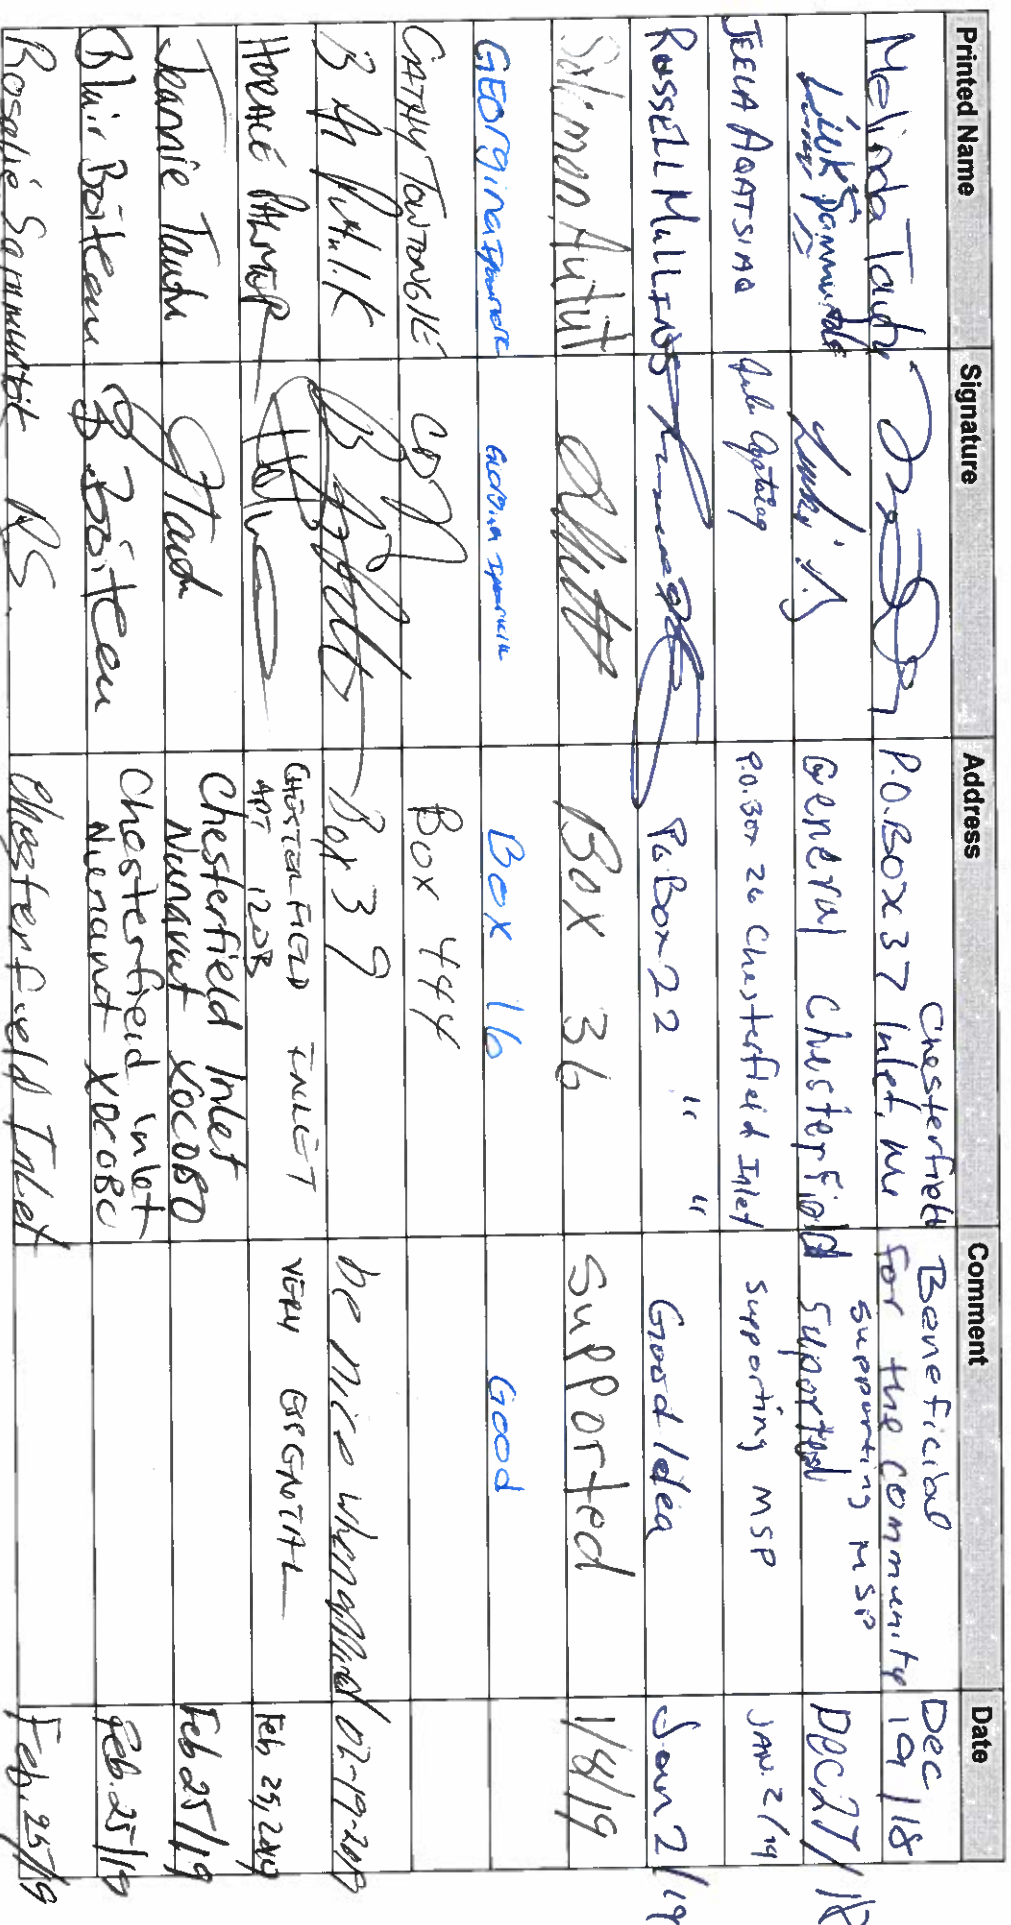 Printed Name Signature Address Comment Date
Melinda Tautu P.O. Box 37 Chesterfield Inlet, Nu Beneficial for the community supporting MSP Dec 19/18
Sammurtok General Chesterfield Suported DEC 27/18
JEELA AQATSIAQ P.O. Box 26 Chesterfield Inlet Supporting MSP JAN. 2/19
RUSSELL MULLINS P.o. Box 22 " " Good Idea Jan 2/19
Box 36 Supported 1/8/19
GEOrgina Box 16 Good
CATHY TOWTONGIE CDT Box 444
B Box 39 be nice when 02-19-2019
HORACE PALMER CHESTERFIELD INLET APT 12B VERY ESSENTIAL Feb 25, 2019
Jeannie Tautu JTautu Chesterfield Inlet Nunavut X0C0B0 Feb 25/19
Blair Boiteau B. Boiteau Chesterfield inlet Nunavut X0C0B0 Feb. 25/19
Rosalie Sammurtok RS. Chesterfield Inlet Feb. 25/19